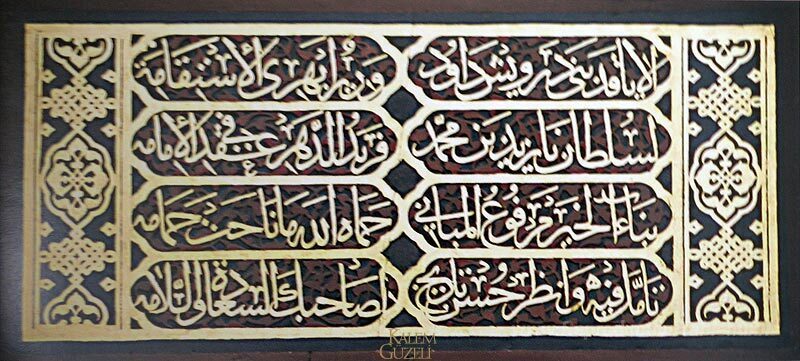 ألا يا قد بنى درويش داود وزير نهرى الاستقامة
لسلطان بايزيد بن محمد فريد الدهر في عقد الإمامه
بناء الخير مرفوع المباني حماه الله ما ناحت حمامه
تأمل فيه وانظر حسن تاريخ لصاحبك السعادة والسلامه
KALEM GÜZELİ